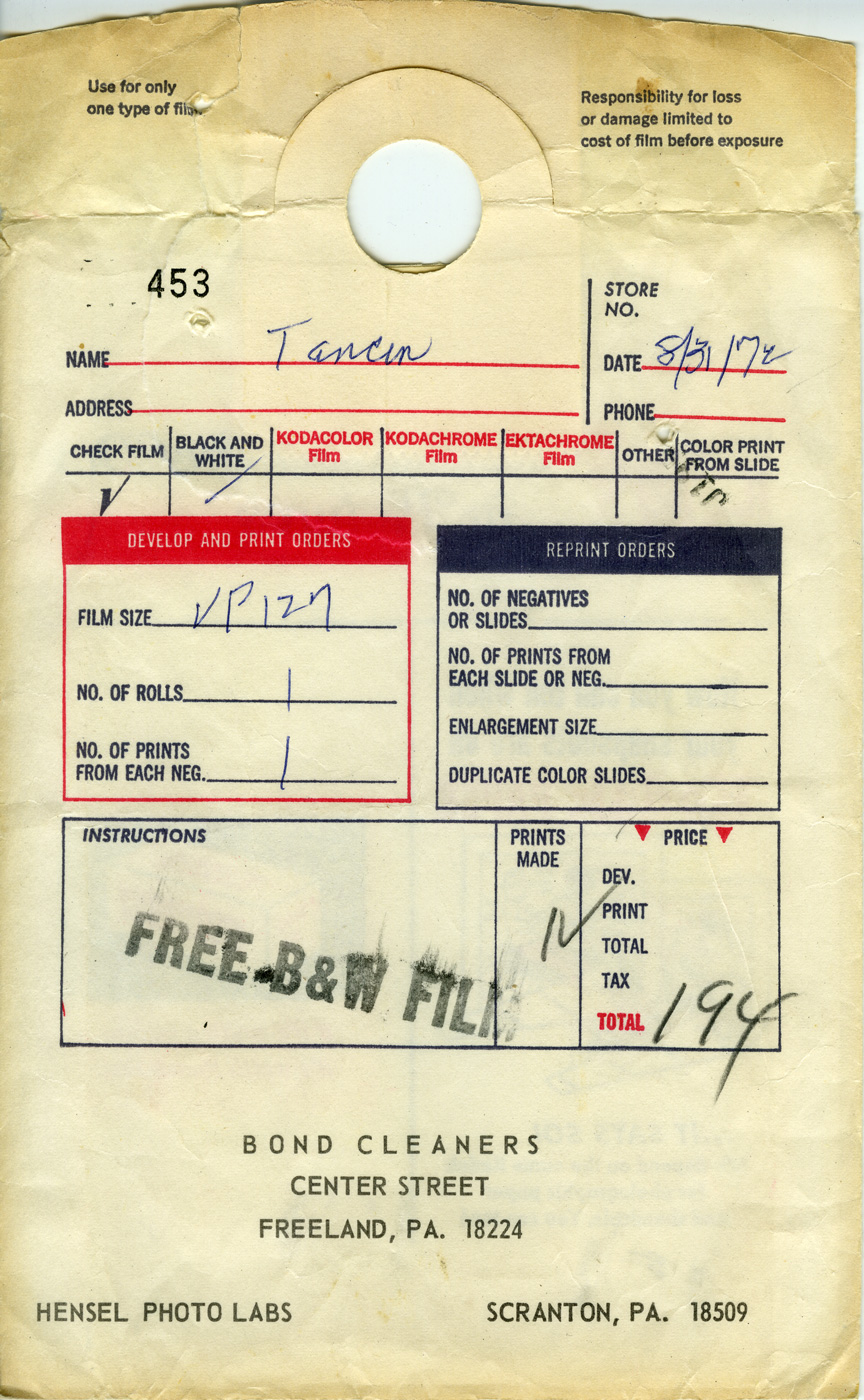 Use for only
one type of film
Responsibility for loss
or damage limited to
cost of film before exposure
453
STORE
NO.
NAME Tancin
DATE 8/31/72
ADDRESS
PHONE
CHECK FILM
BLACK AND
WHITE
KODACOLOR
Film
KODACHROME
Film
EKTACHROME
Film
OTHER
COLOR PRINT
FROM SLIDE
DEVELOP AND PRINT ORDERS
FILM SIZE VP127
NO. OF ROLLS 1
NO. OF PRINTS
FROM EACH NEG. 1
REPRINT ORDERS
NO. OF NEGATIVES
OR SLIDES
NO. OF PRINTS FROM
EACH SLIDE OR NEG.
ENLARGEMENT SIZE
DUPLICATE COLOR SLIDES
INSTRUCTIONS
FREE B&W FILM
PRINTS
MADE
PRICE
DEV.
PRINT
TOTAL
TAX
TOTAL 194
BOND CLEANERS
CENTER STREET
FREELAND, PA. 18224
HENSEL PHOTO LABS
SCRANTON, PA. 18509